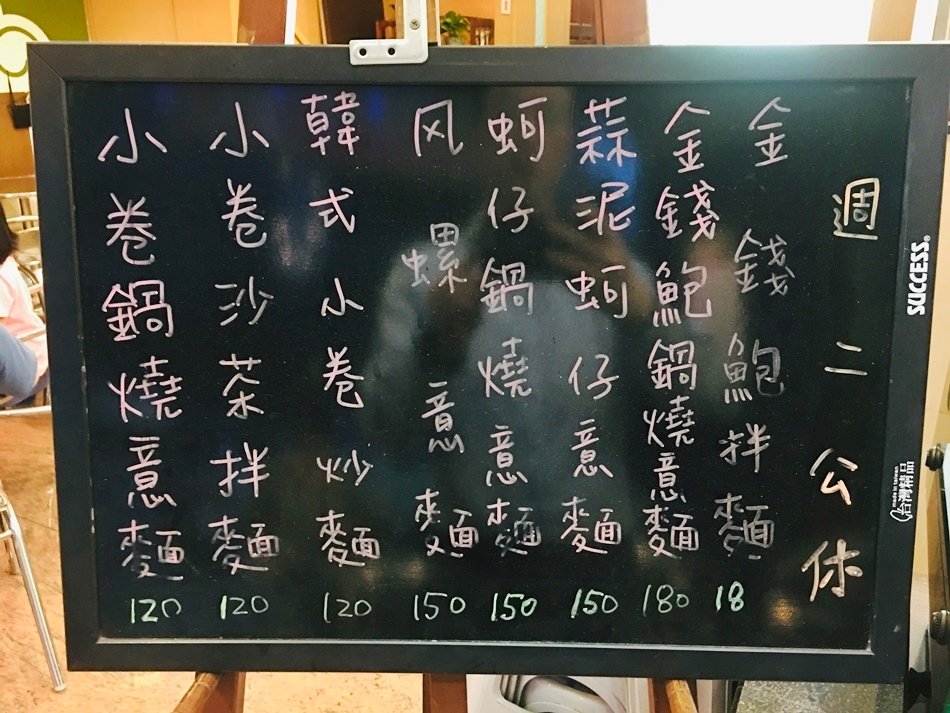 週二公休
金錢鮑拌麵 18
金錢鮑鍋燒意麵 180
蒜泥蚵仔意麵 150
蚵仔鍋燒意麵 150
风螺意麵 150
韓式小卷炒麵 120
小卷沙茶拌麵 120
小卷鍋燒意麵 120
SUCCESS®
made in taiwan
台灣精品